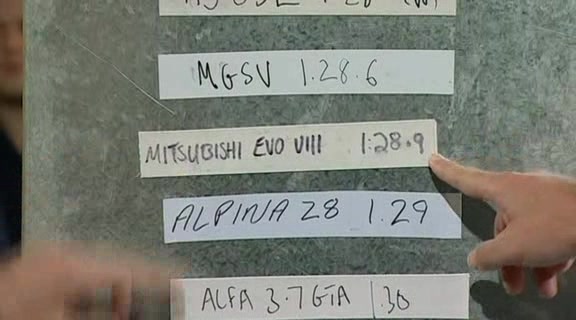 MGSV 1.28.6
MITSUBISHI EVO VIII 1:28.9
ALPINA Z8 1.29
ALFA 3.7 GTA 1.30